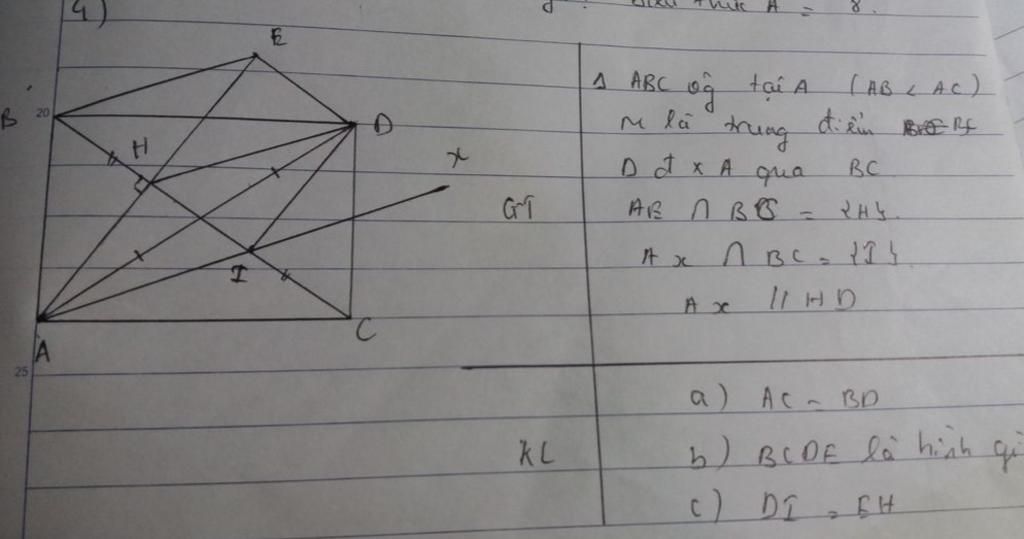 4)
A = 8.
E
B
20
D
H
x
I
A
C
25
GT
Δ ABC vg tại A (AB < AC)
M là trung điểm
D đ x A qua BC
AE ∩ BC = {H}.
Ax ∩ BC = {I}.
Ax // HD
KL
a) AC = BD
b) BCDE là hình gì
c) DI = EH